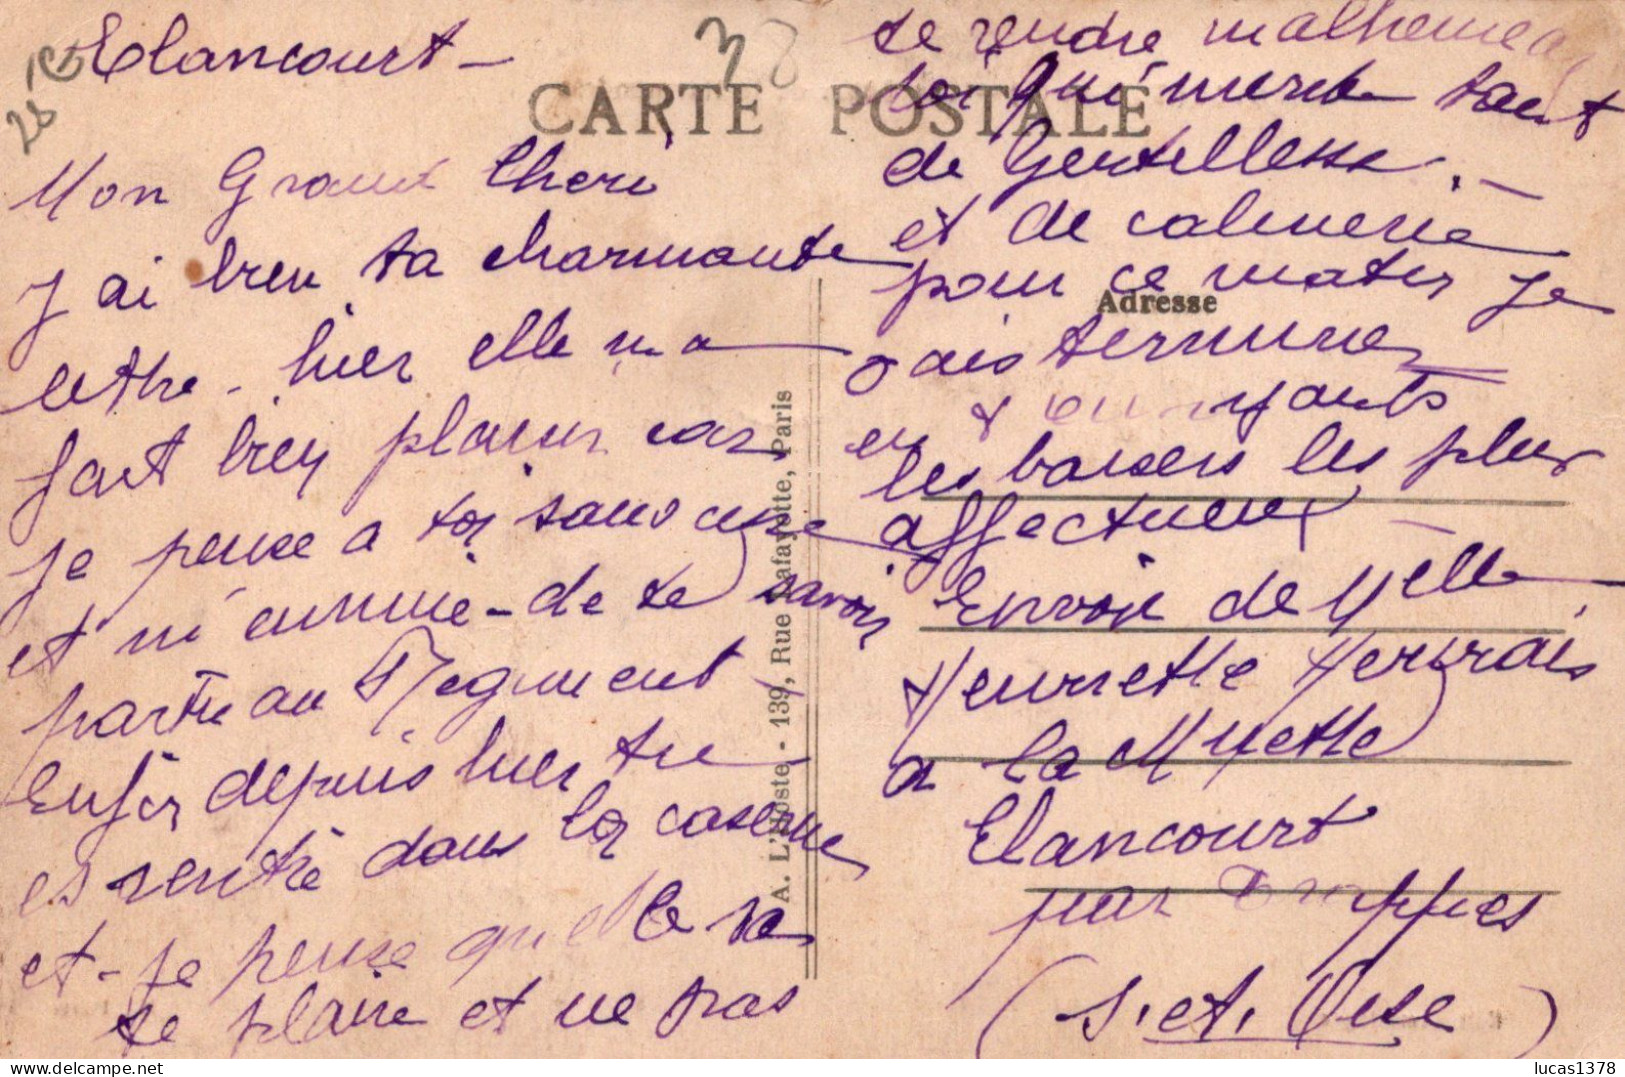 Elancourt -
CARTE POSTALE
Mon Grand Cheri
J'ai bien ta charmante
lettre - hier elle m'a
fait bien plaisir car
je pense a toi sans cesse
et m'ennuie - de te savoir
partie au Regiment
Enfin depuis hier tu
es rentré dans la caserne
et - je pense qu'elle va
te plaire et ne pas
te rendre
toi qui merite tant
de Gentillesse . -
et de calinerie
pour ce matin je
vais terminer
en t'envoyants
les baisers les plus
affectueux -
Envoie de Melle
Henriette
a la Muette
Elancourt
par Trappes
(S. et. Oise)
Adresse
A. L'Hoste - 139, Rue Lafayette, Paris
lucas1378